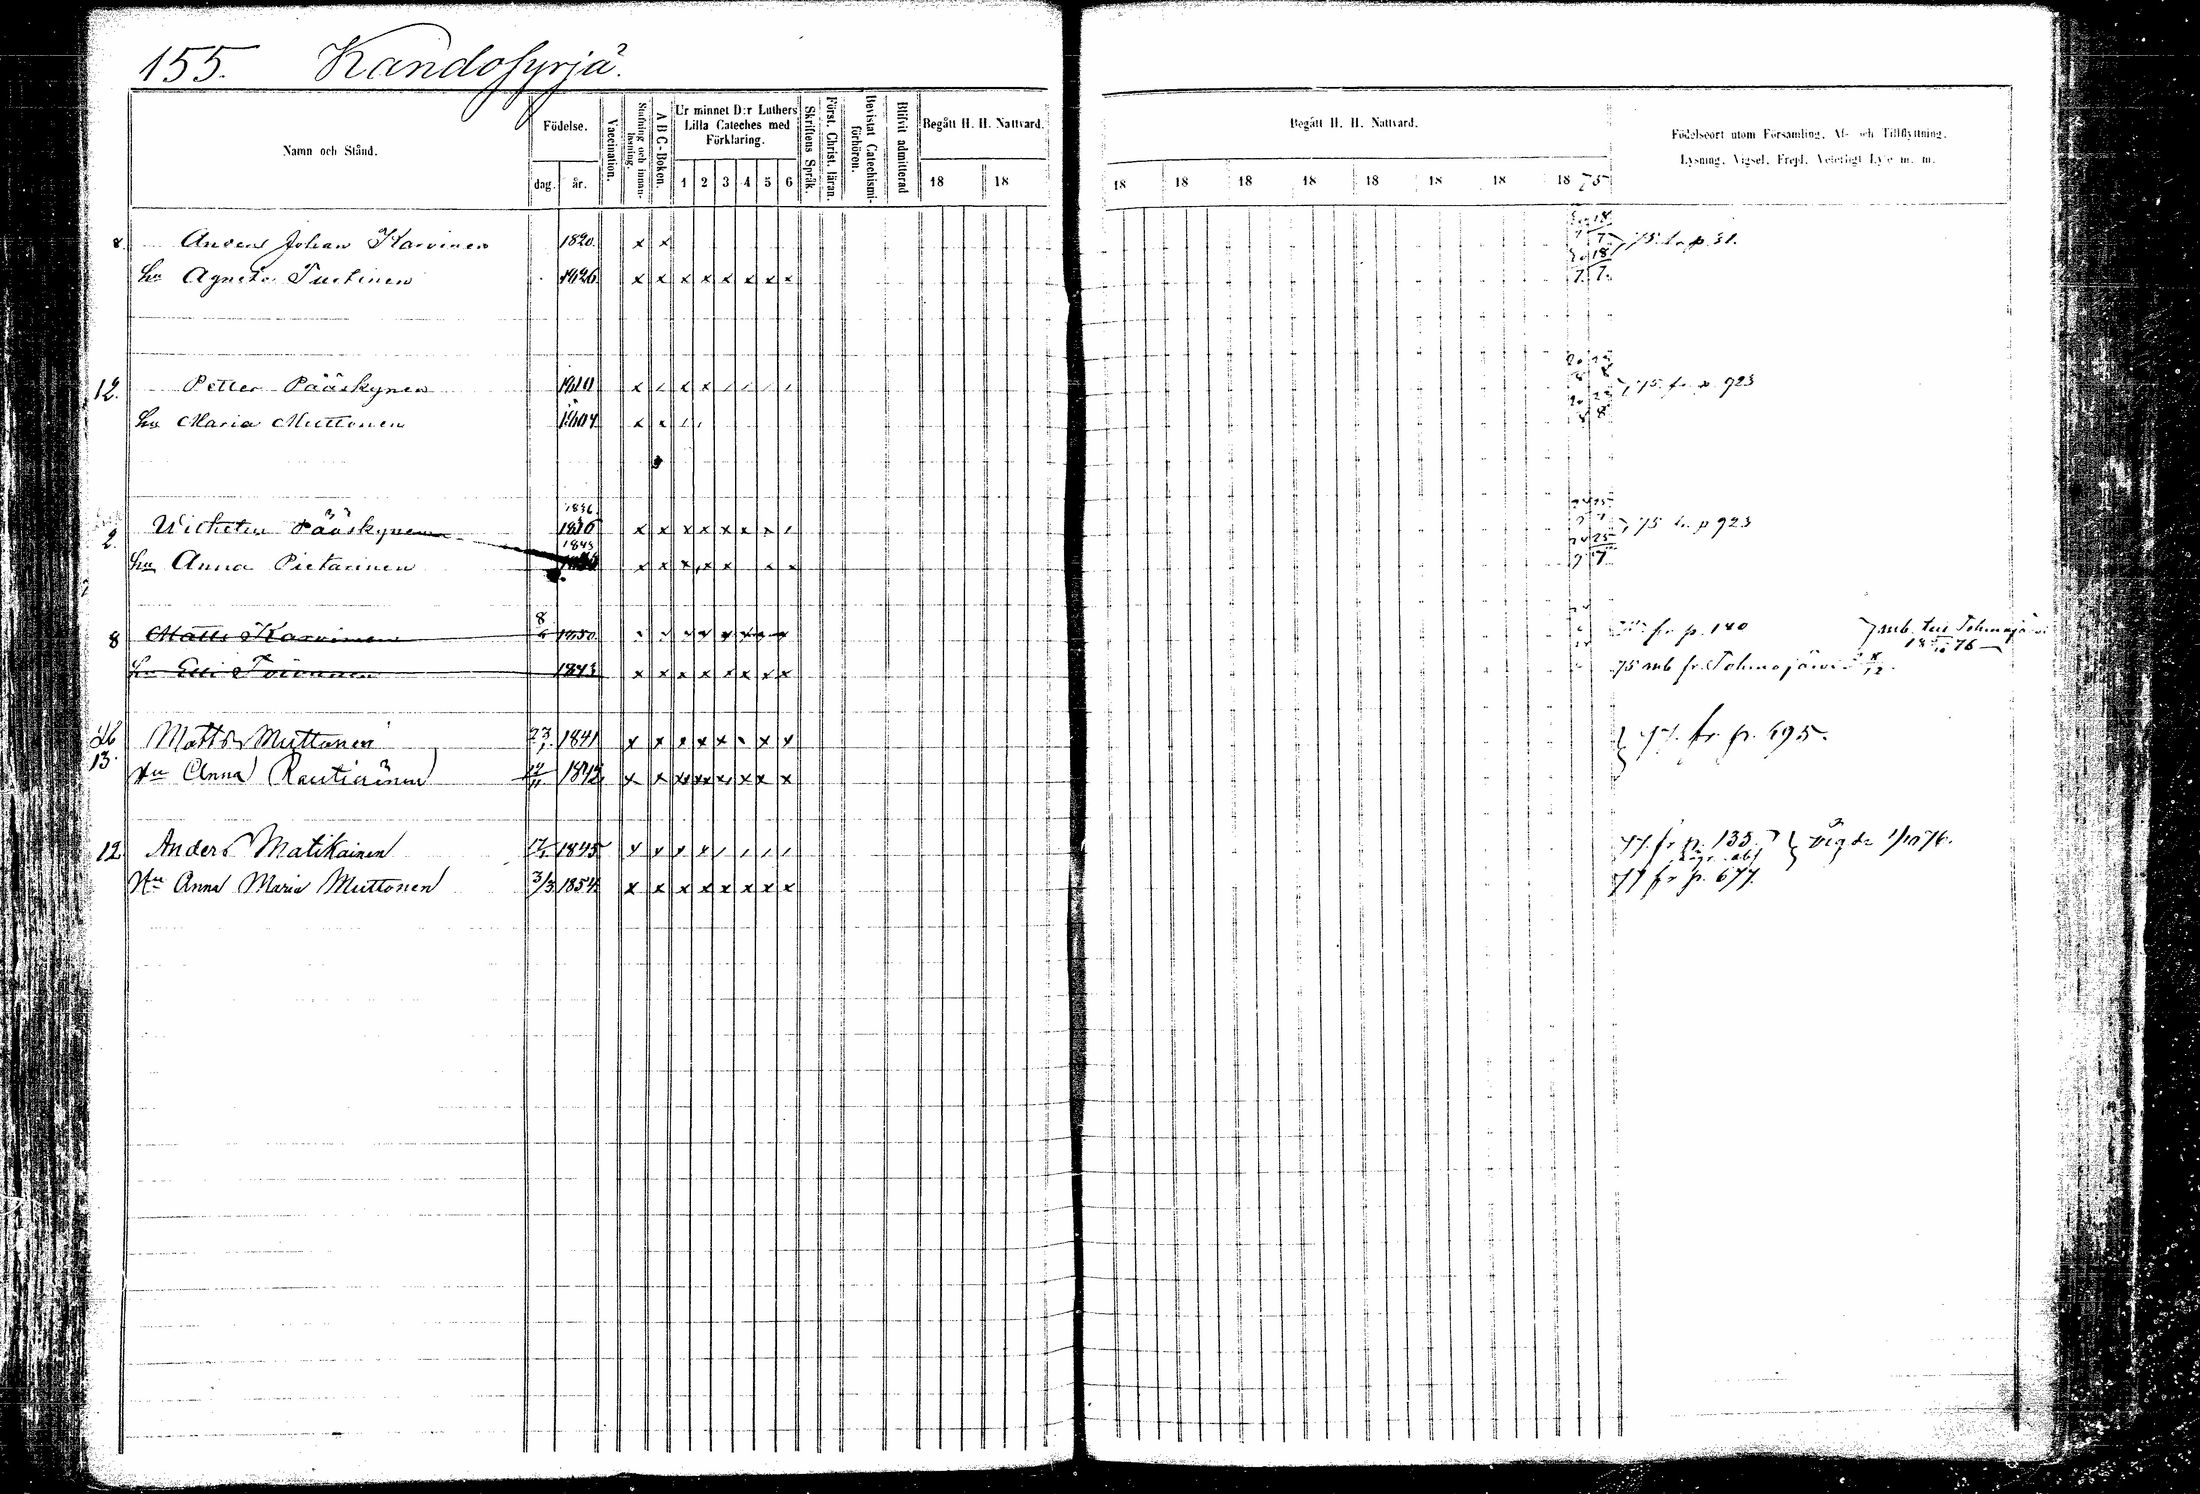 155. Kandosyrjä.
Namn och Stånd.
Födelse.
dag.
år.
Vaccination.
Stafning och innan-läsning.
A B C-Boken.
Ur minnet D:r Luthers Lilla Cateches med Förklaring.
1 2 3 4 5 6
Skriftens Språk.
Först. Christ. läran.
Bevistat Catechismi-förhören.
Blifvit admitterad
Begått H. H. Nattvard.
18 18
Begått H. H. Nattvard.
18 18 18 18 18 18 18 18 75
Födelseort utom Församling, Af- och Tillflyttning,
Lysning, Vigsel, Frejd, Vetetligt Lyte m. m.
8. Anders Johan Karvinen 1820 x x 75 fr p. 31.
hu Agneta 1826 x x x x x x x x
12. Petter Pääskynen x / x x / / / / 75 fr p. 923
hu Maria Muttonen x x / /
1836
2. Wilhelm Pääskynen x x x x x x x / 75 fr p 923
1843
hu Anna Pietarinen x x x x x x x
8 Matts Karvinen 8 1850 fr p. 180 mb till Tohmajärvi
hu Elli 1843 x x x x x x x x 75 mb fr Tohmajärvi
Matts Muttonen 1841 x x x x x x x 77. fr p. 695.
13. Hu Anna Rautiainen 1842 x x x x x x x x
12 Anders Matikainen 17/1 1845 x x x x / / / / 77. fr p. 135. vigde 1/10 76.
Hu Anna Maria Muttonen 3/3 1854 x x x x x x x x 77 fr p. 677.